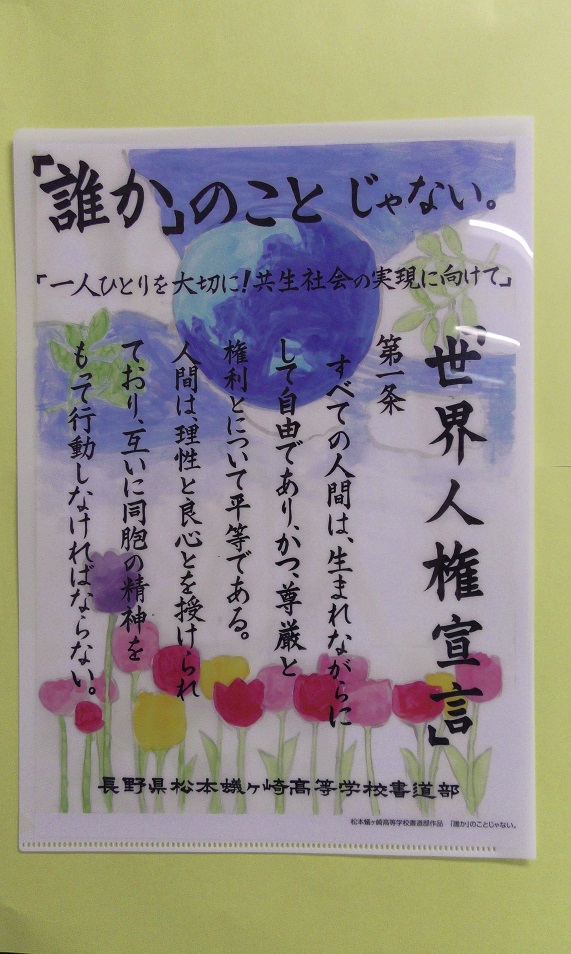 「誰か」のこと じゃない。
「一人ひとりを大切に!共生社会の実現に向けて」
『世界人権宣言』
第一条
すべての人間は、生まれながらに
して自由であり、かつ、尊厳と
権利とについて平等である。
人間は、理性と良心とを授けられ
ており、互いに同胞の精神を
もって行動しなければならない。
長野県松本蟻ヶ崎高等学校書道部
松本蟻ヶ崎高等学校書道部作品 「誰か」のことじゃない。